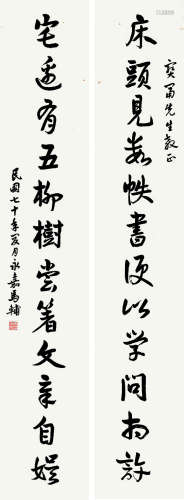 寳勇先生教正
床頭見數帙書便以学問相許
宅邊有五柳樹嘗著文章自娱
民國七十年夏月永嘉馬輔